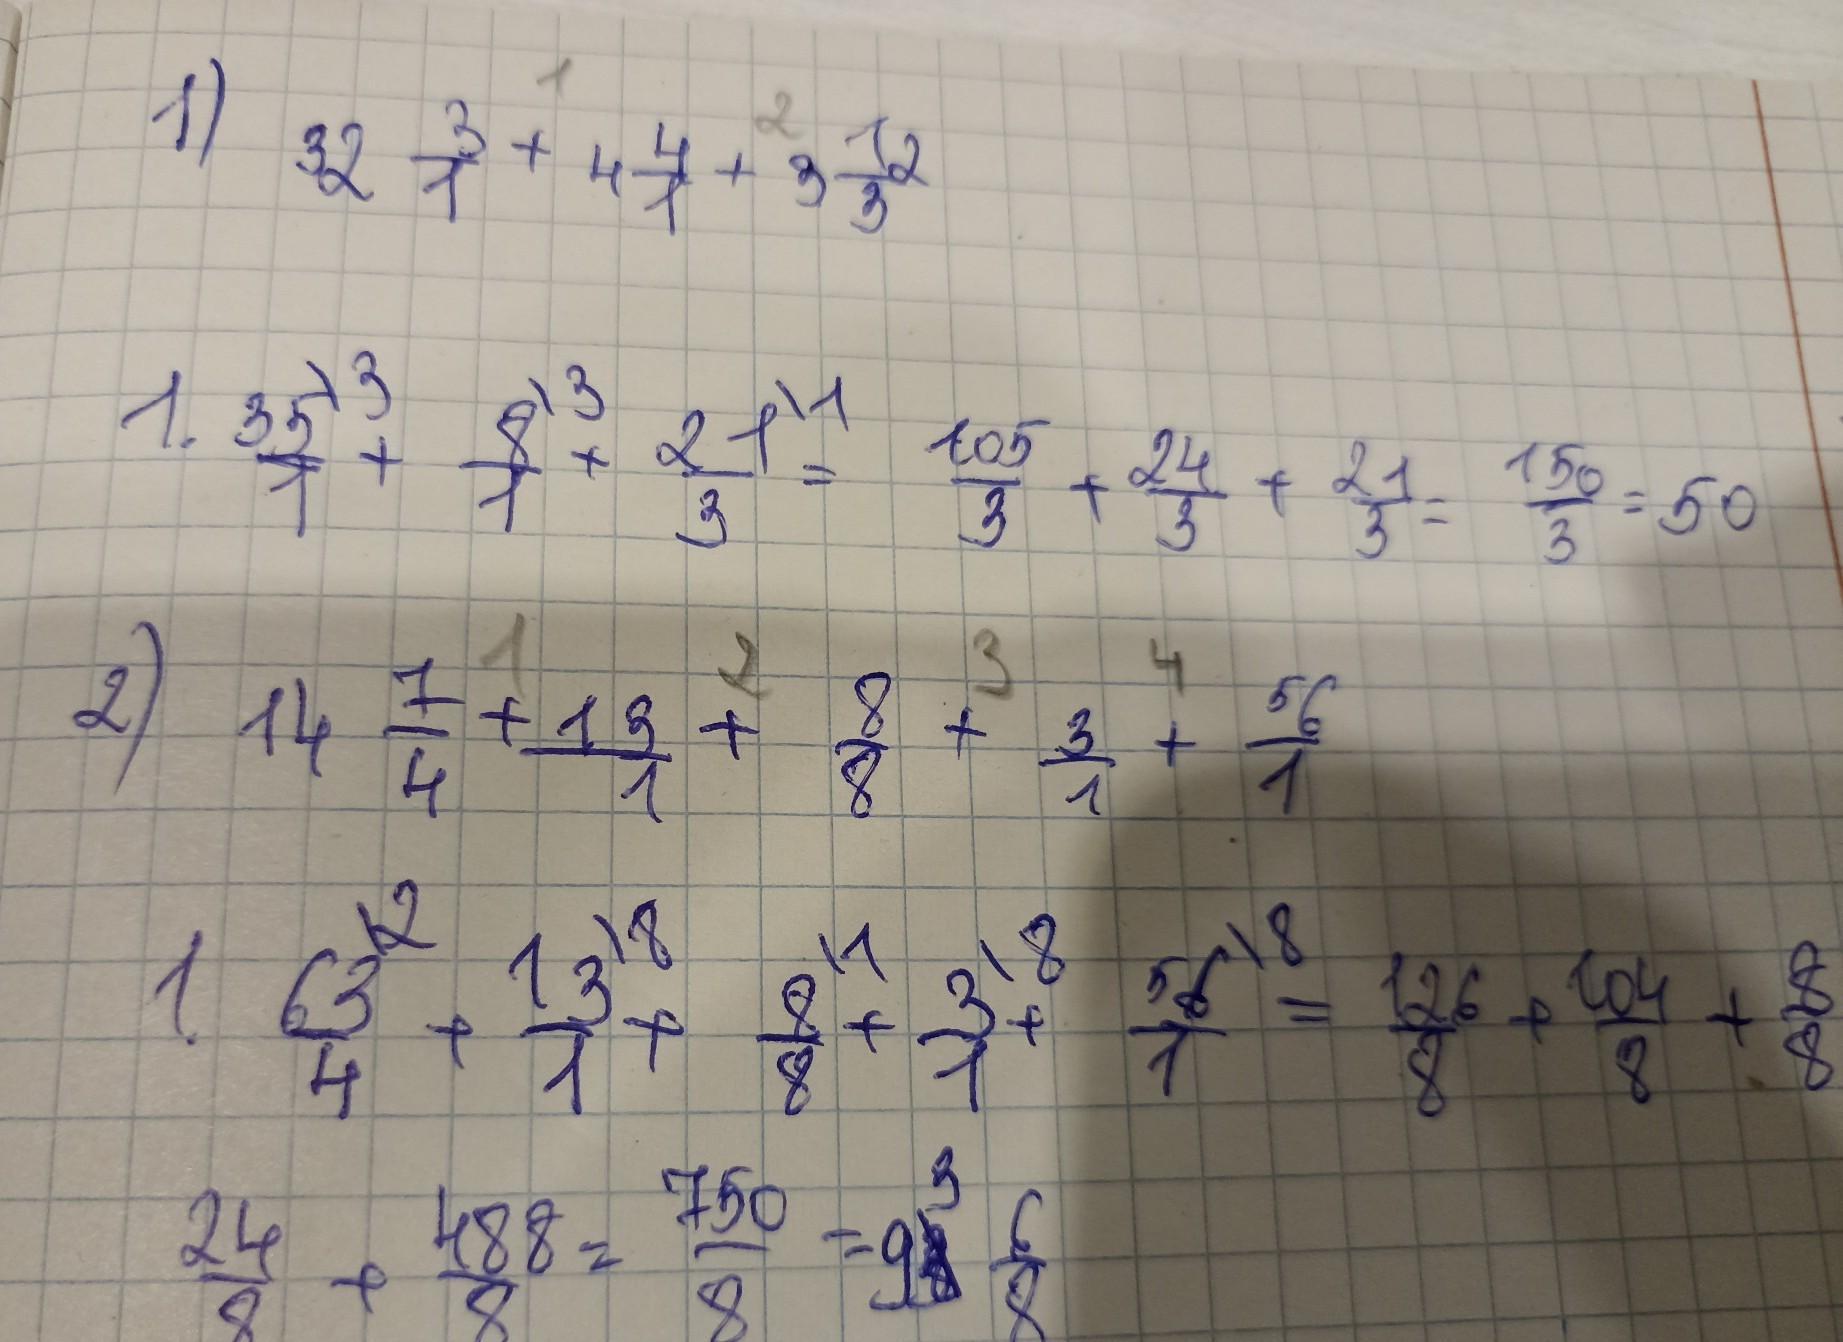 1) 32 3/1 + 4 4/1 + 3 12/3
1 2
1. 35/1\3 + 8/1\3 + 21/3\1 = 105/3 + 24/3 + 21/3 = 150/3 = 50
1 2 3 4
2) 14 7/4 + 13/1 + 8/8 + 3/1 + 56/1
1. 63/4\2 + 13/1\8 + 8/8\1 + 3/1\8 + 56/1\8 = 126/8 + 104/8 + 8/8
24/8 + 488/8 = 750/8 = 93 6/8